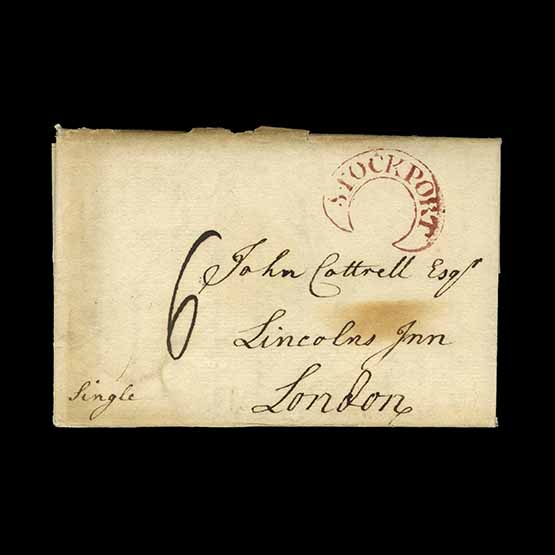 STOCKPORT
6
John Cottrell Esqr
Lincolns Inn
London
Single